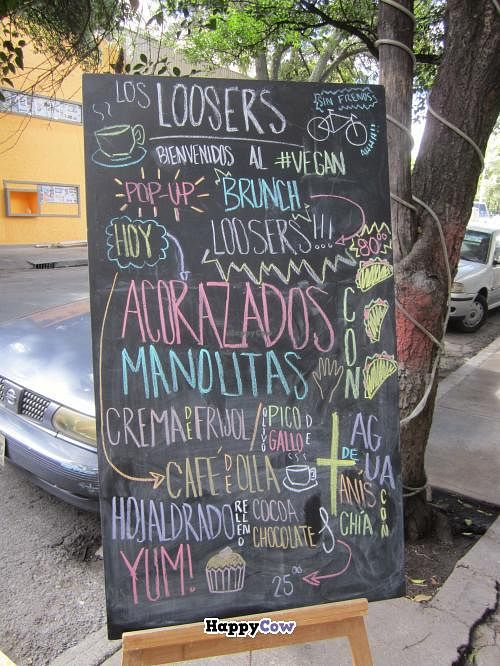 LOS LOOSERS
SIN FRENOS
AHHH!!
BIENVENIDOS AL #VEGAN
POP-UP BRUNCH
HOY LOOSERS!!!
90⁰⁰
ACORAZADOS
MANOLITAS
CON
CREMA DE FRIJOL / OLIVO PICO DE GALLO
CAFÉ DE OLLA
+ AGUA DE ANÍS CON CHÍA
HOJALDRADO RELLENO COCOA & CHOCOLATE
YUM!
25⁰⁰
HappyCow